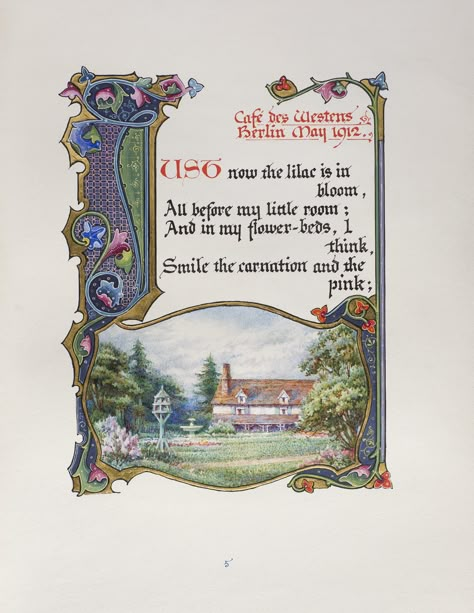 Café des Westens
Berlin May 1912.
JUST now the lilac is in
bloom,
All before my little room;
And in my flower-beds, I
think,
Smile the carnation and the
pink;
5